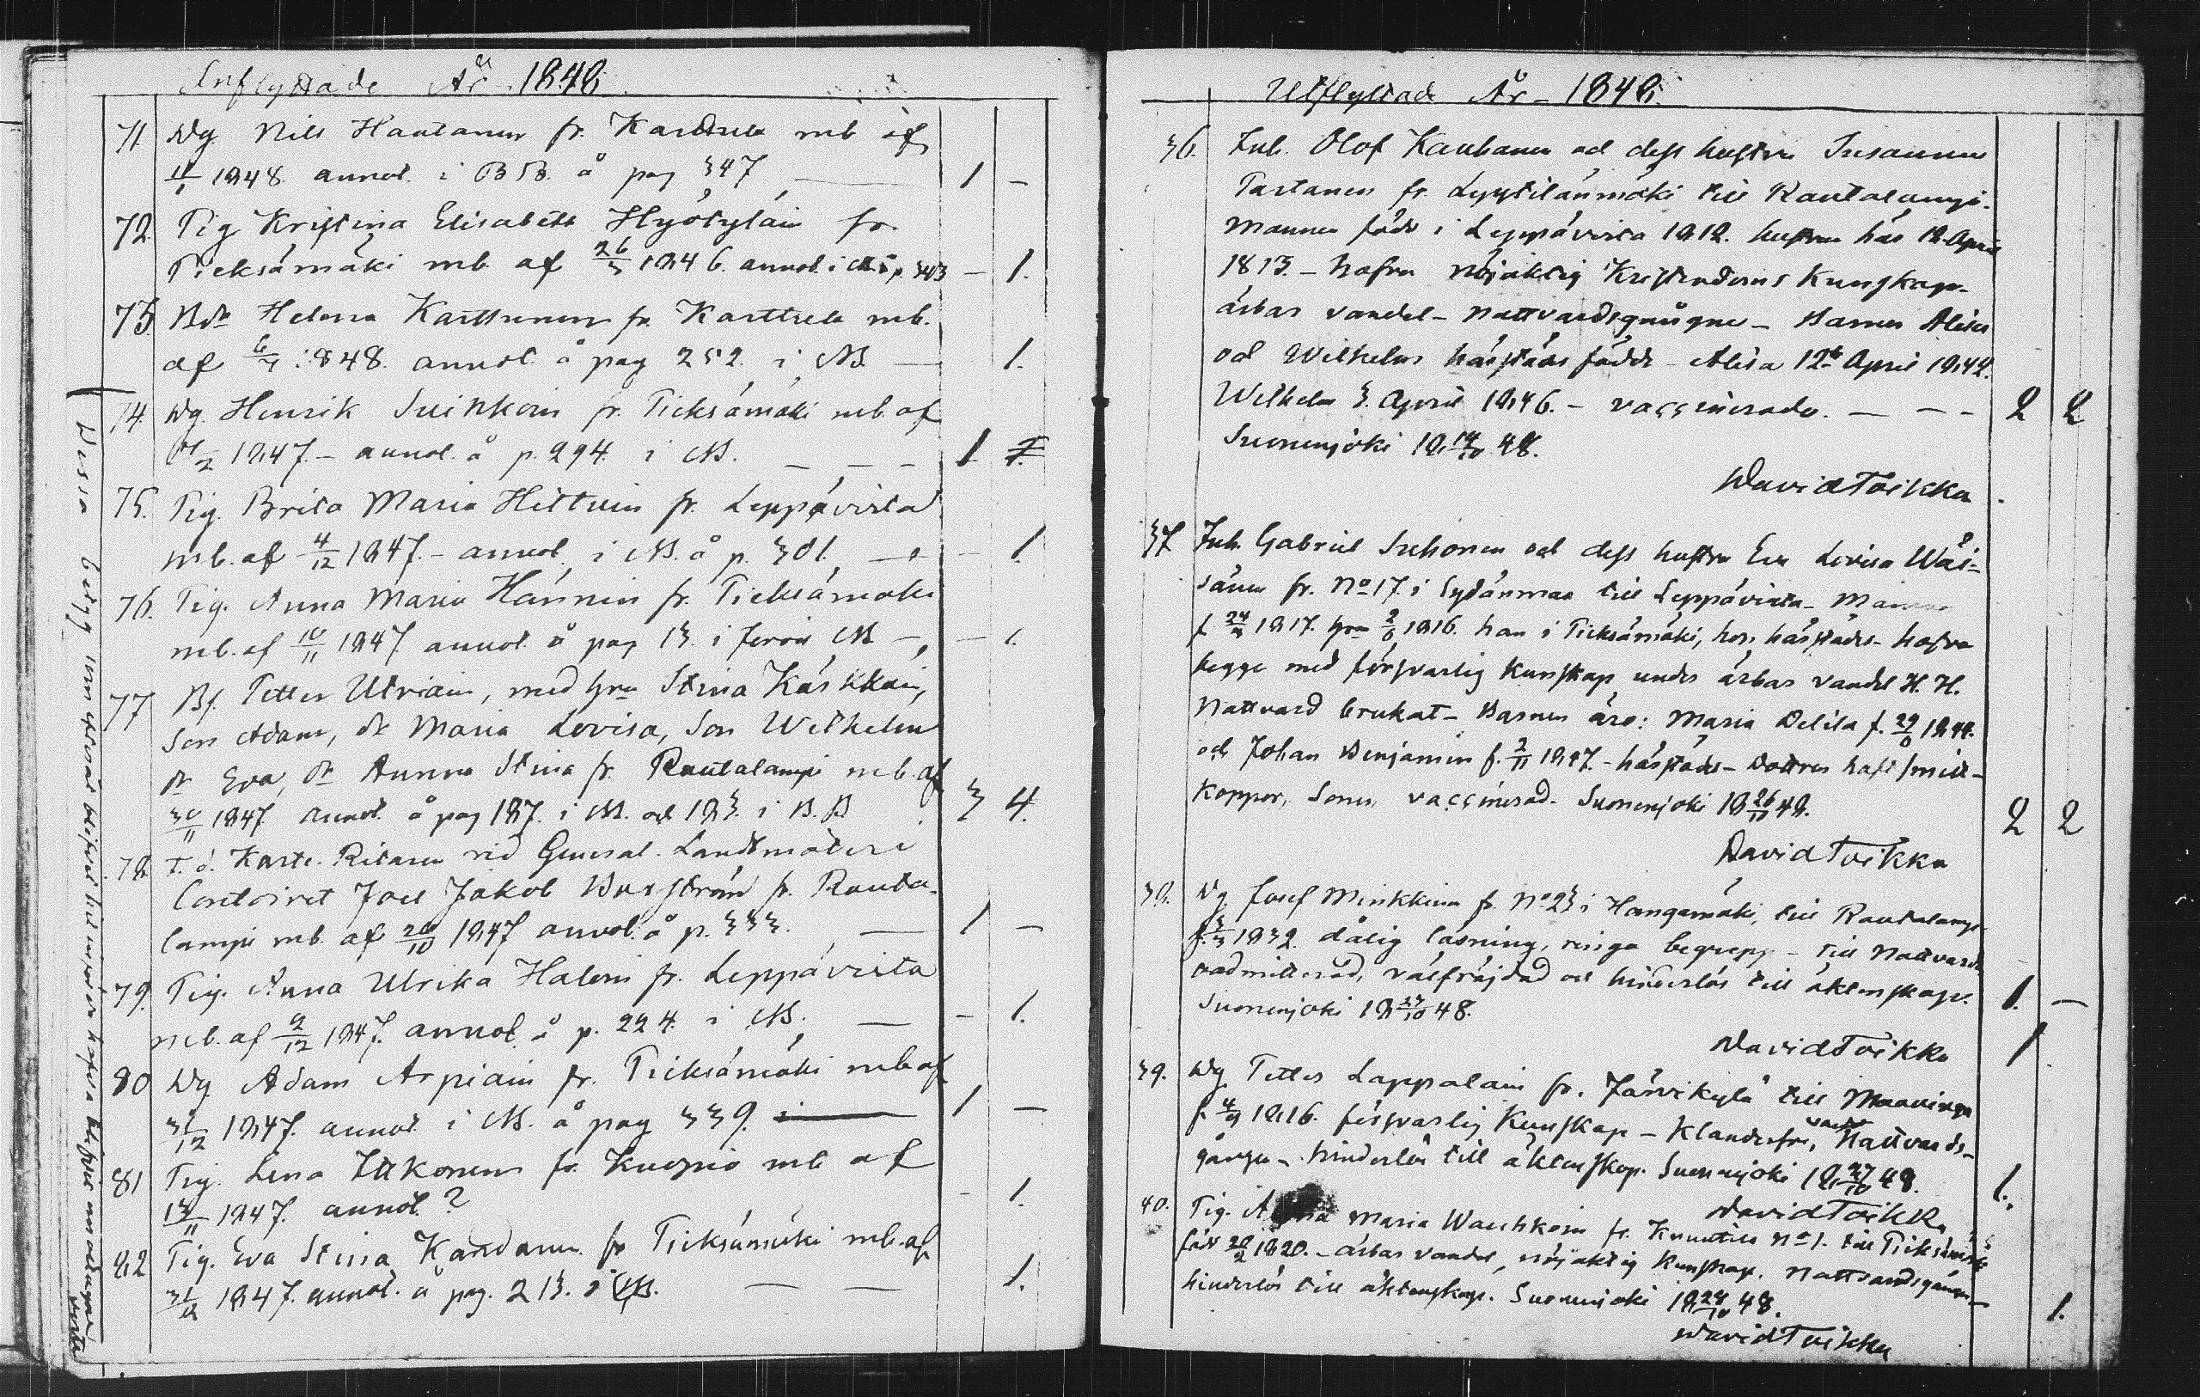 Inflyttade År 1848
71 Dg. Nils Hautanen fr. Karttula mb af
11/1 1848 annot. i BB. å pag 347 — 1 –
72. Pig Kristina Elisabeth Hyötyläin fr.
Pieksämäki mb af 26/3 1846. annot. i – 1.
73 Ddr Helena Karttunen fr. Karttula mb.
af 6/4 1848. annot å pag 252 i NB — 1.
74. Dg. Henrik Suihkoin fr. Pieksämäki mb. af
1847.– annot. å p. 294. i NB. – – – 1
75. Pig. Brita Maria Hiltuin fr. Leppävirta
mb. af 4/12 1847.– annot. i NB. å p. 301. – 1.
76. Pig. Anna Maria Hännin fr. Pieksämäki
mb. af 10/11 1847 annot å pag 13. i NB – – 1.
77 Bf. Petter Utriain, med hru Stina Käskkäin,
Son Adam, dr Maria Lovisa, Son Wilhelm
dr Eva, dr Anna Stina fr. Rautalampi mb. af
30/11 1847 annot. å pag 187. i NB. och 183. i B.B 3 4.
78. t.d. Karte. Ritaren vid General Landtmäteri
Contoiret Joel Jakob fr. Rauta-
lampi mb. af 20/10 1847 annot. å p. 333. — 1 –
79. Pig. Anna Ulrika Haloin fr. Leppävirta
mb. af 9/12 1847. annot. å p. 224. i NB. — – 1.
80 Dg Adam Arpiain fr. Pieksämäki mb af
31/12 1847. annot i NB. å pag 339. 1 —
81 Pig. Lena Itkonen fr. Kuopio mb af
13/11 1847. annot.? – 1.
82 Pig. Eva Stina fr Pieksämäki mb. af
1847. annot. å pag. 213. i NB. — — 1.
Dessa betyg
Utflyttade År – 1848.
36. Inh. Olof Kauhanen och dess hustru Susanna
Partanen fr. Lyytilänmäki till Rautalampi.
Mannen född i Leppävirta 1812. hustrun här 12 April
1813. – hafva nöjaktig Kristendoms Kunskap.
ärbar vandel – Nattvardsgångne – Barnen Alisa
och Wilhelm härstädes födde – Alisa 12te April 1842.
Wilhelm 3. April 1846. – vaccinerade. – – – 2 2
Suonenjoki 18 14/10 48.
David Toikka
37 Inh. Gabriel Suhonen och dess hustru Eva Lovisa Wäi-
sänen fr. No 17. i Sydänmaa till Leppävirta – Mannen
f 1817. hru 1816. han i Pieksämäki, hon härstädes – hafva
begge med försvarlig Kunskap under ärbar vandel H. H.
Nattvard brukat – Barnen äro: Maria Delila f. 1844.
och Johan Benjamin f. 2/11 1847. – härstädes – Dottren haft smitt-
koppor, Sonen vaccinerad. Suonenjoki 18 26/10 48. 2 2
David Toikka
38. Dg. Josef Minkkinen fr. No 23 i Hangamäki, till Rautalampi
f. 1832. dålig läsning, ringa begrepp – till Nattvard
oadmitterad, välfräjdad och hinderlös till äktenskap.
Suonenjoki 18 27/10 48. 1. —
David Toikka
39. Dg Petter Lappalain fr. Järvikylä till Maaninga
f. 4/9 1816. försvarlig Kunskap – Klanderfri, vandel Nattvards-
gången – hinderlös till äktenskap. Suonenjoki 18 27/10 48. 1.
David Toikka
40. Pig. Anna Maria fr. Kuvatila No 1. till Pieksämäki
född 1820. – ärbar vandel, nöjaktig Kunskap. Nattvardsgången –
hinderlös till äktenskap. Suonenjoki 18 28/10 48. 1.
David Toikka